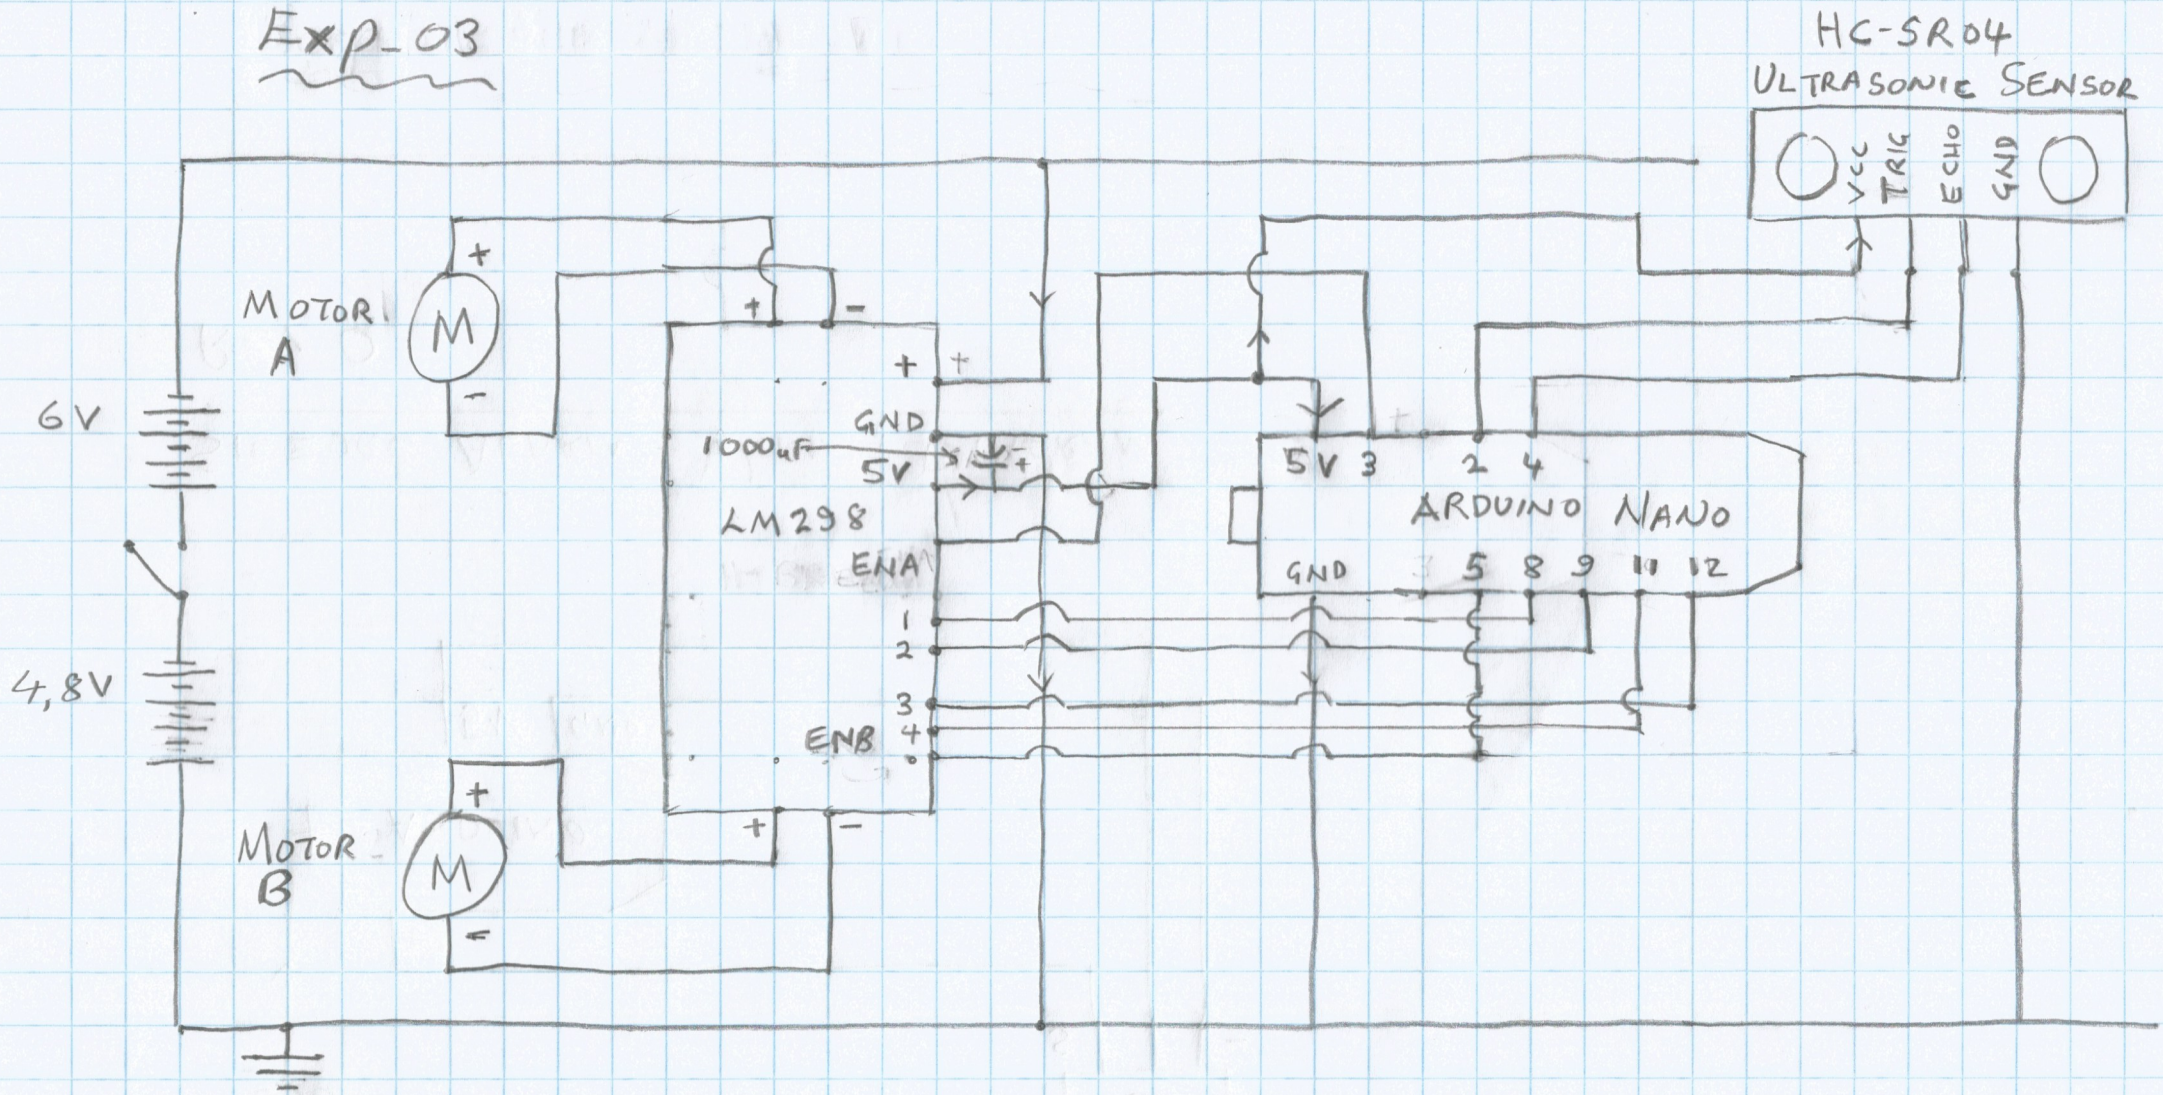 Exp_03
HC-SR04
ULTRASONIC SENSOR
VCC
TRIG
ECHO
GND
+
MOTOR
A
M
-
+
-
+
+
6V
GND
1000uF
+
-
5V
LM298
ENA
1
2
3
4
ENB
5V 3 2 4
ARDUINO NANO
GND 5 8 9 11 12
4,8V
+
MOTOR
B
M
-
+
-